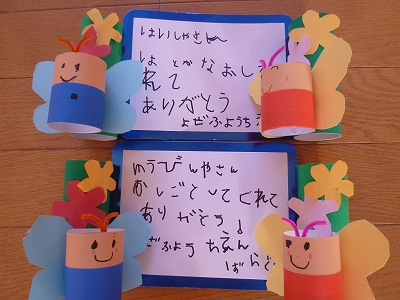 はいしゃさん
は とか なおし
れて
ありがとう
よぜふようち
ゆうびんやさん
おしごとしてくれて
ありがとう
ぜふようちえん
ばら